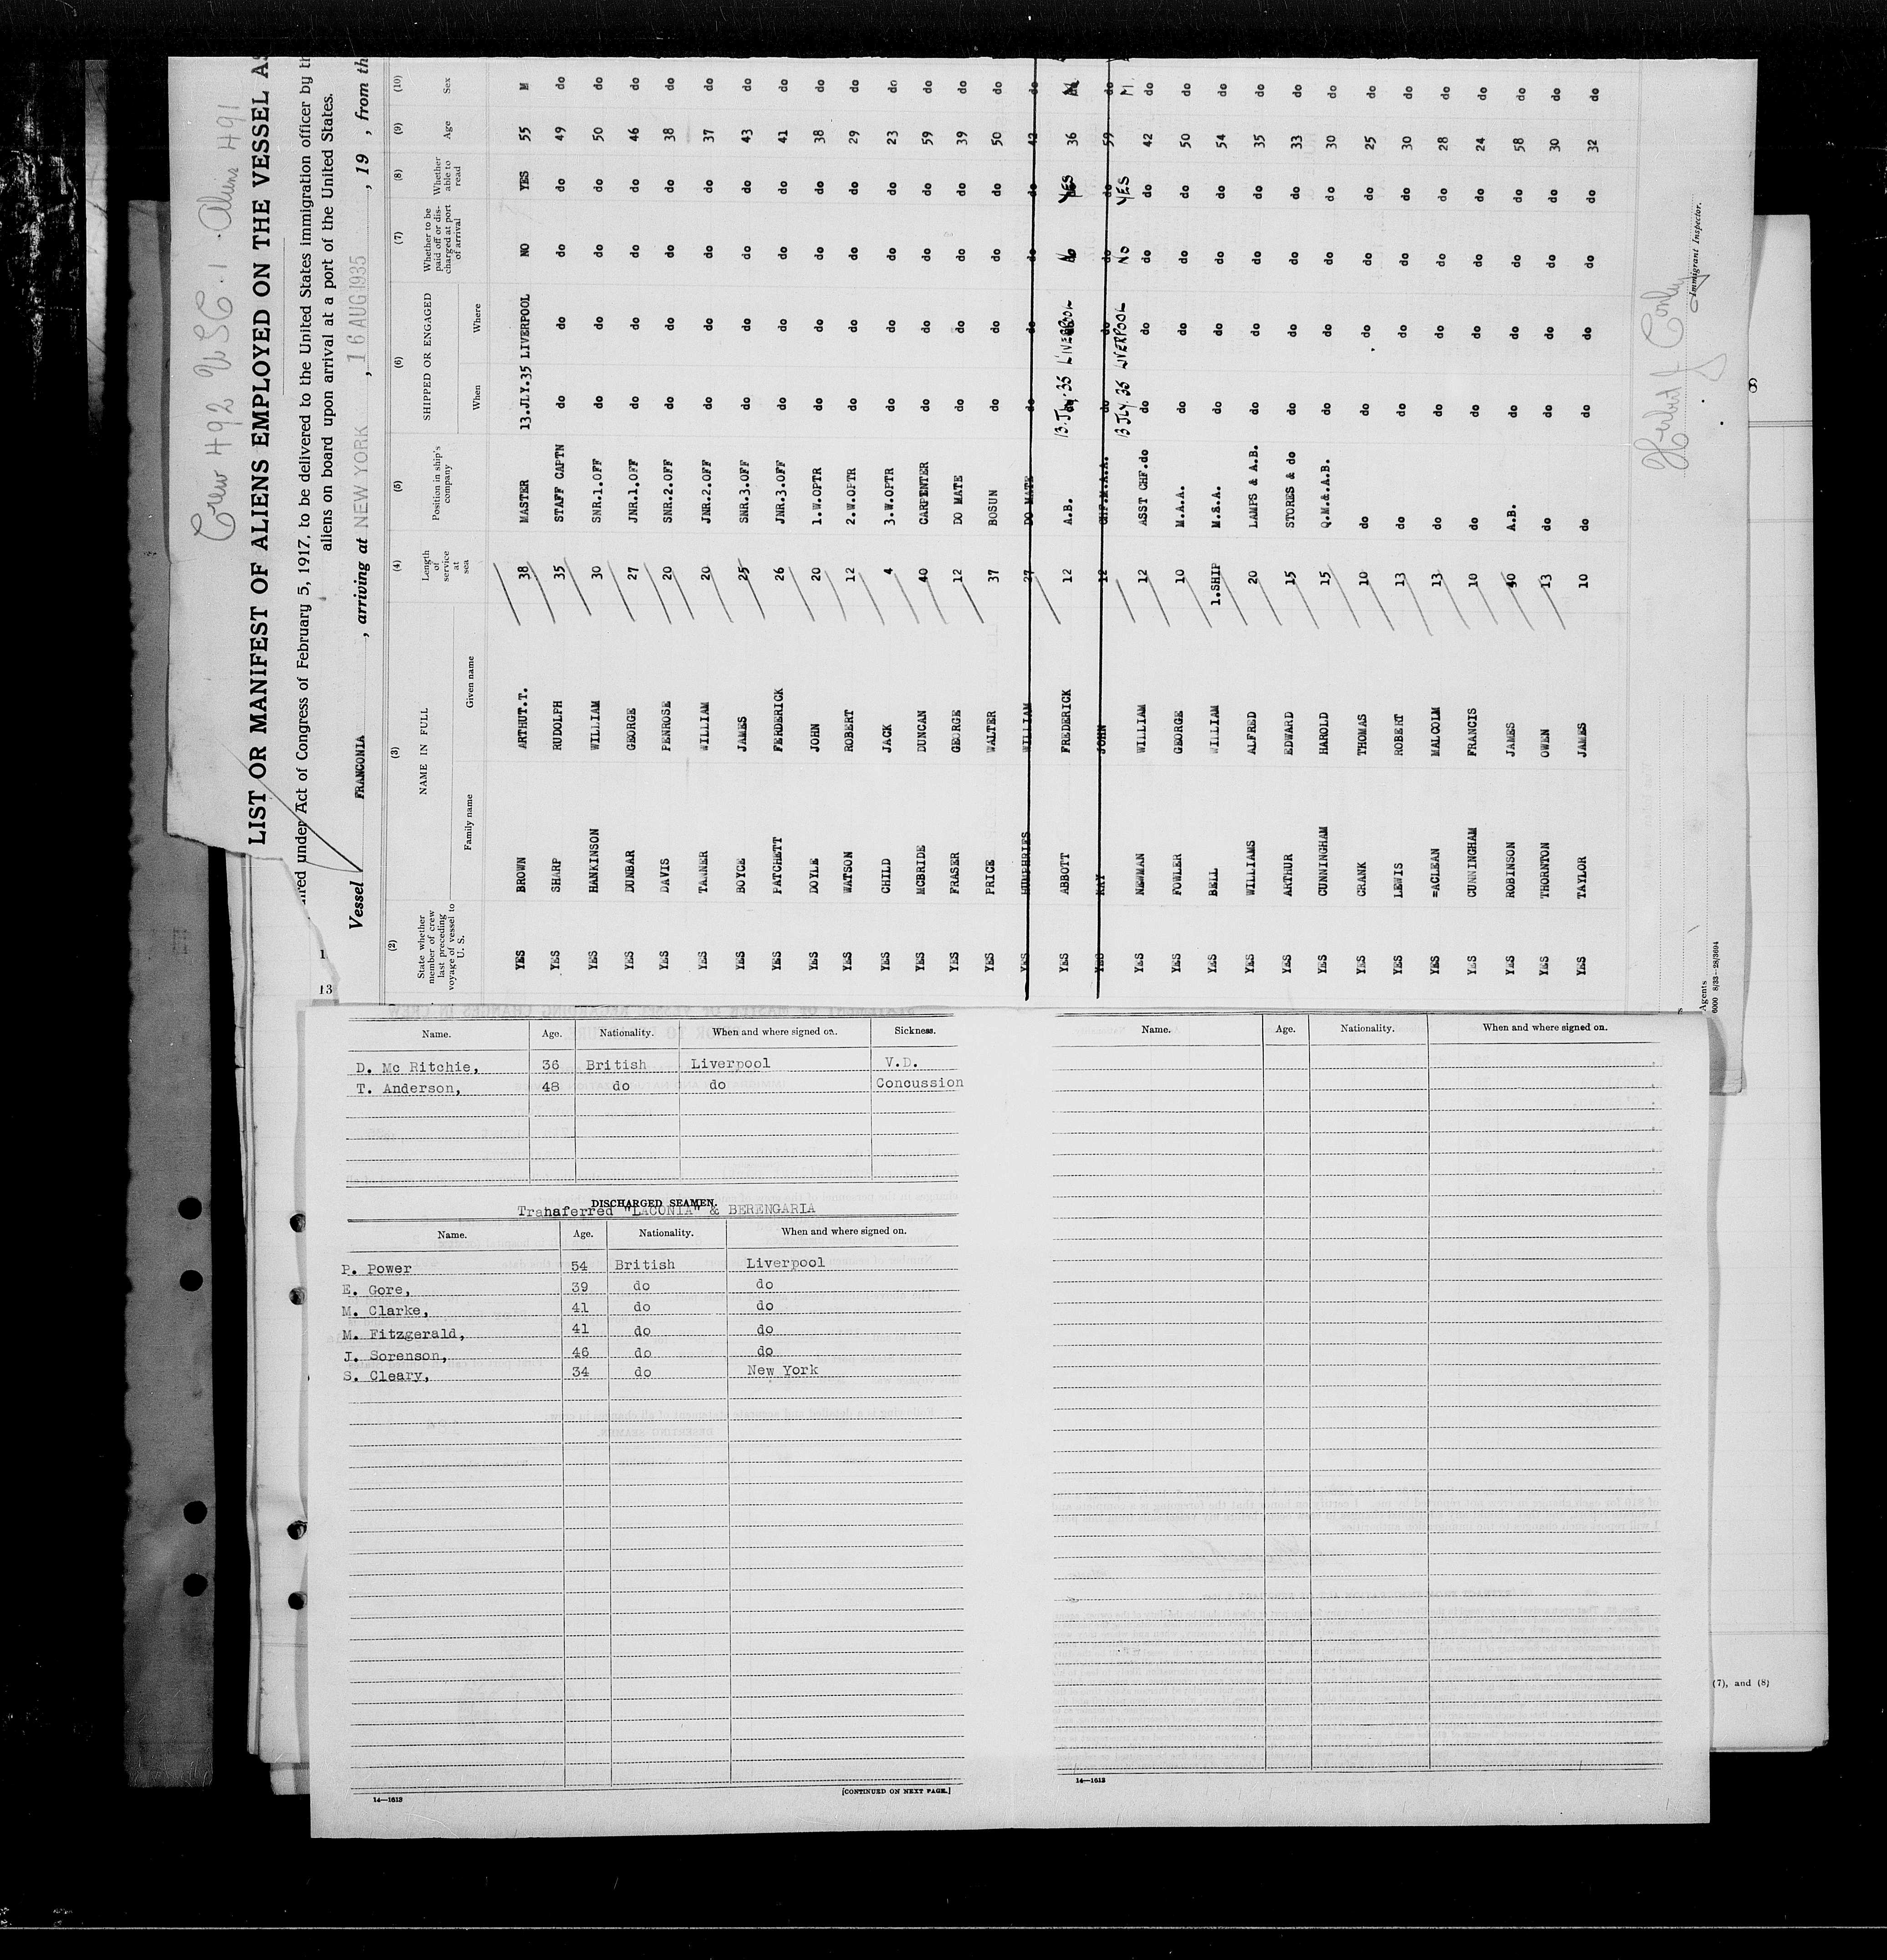 Crew 492 USC. 1. Aliens 491
LIST OR MANIFEST OF ALIENS EMPLOYED ON THE VESSEL AS
under Act of Congress of February 5, 1917, to be delivered to the United States immigration officer by th
aliens on board upon arrival at a port of the United States.
Vessel FRANCONIA, arriving at NEW YORK, 16 AUG 1935, 19 , from th
(2) (3) (4) (5) (6) (7) (8) (9) (10)
State whether member of crew last preceding voyage of vessel to U. S. NAME IN FULL Length of service at sea Position in ship's company SHIPPED OR ENGAGED Whether to be paid off or discharged at port of arrival Whether able to read Age Sex
Family name Given name When Where
YES BROWN ARTHUT.T. 38 MASTER 13.JLY.35 LIVERPOOL NO YES 55 M
YES SHARP RUDOLPH 35 STAFF CAPTN do do do do 49 do
YES HANKINSON WILLIAM 30 SNR.1.OFF do do do do 50 do
YES DUNBAR GEORGE 27 JNR.1.OFF do do do do 46 do
YES DAVIS PENROSE 20 SNR.2.OFF do do do do 38 do
YES TANNER WILLIAM 20 JNR.2.OFF do do do do 37 do
YES BOYCE JAMES 25 SNR.3.OFF do do do do 43 do
YES PATCHETT FERDERICK 26 JNR.3.OFF do do do do 41 do
YES DOYLE JOHN 20 1.W.OPTR do do do do 38 do
YES WATSON ROBERT 12 2.W.OPTR do do do do 29 do
YES CHILD JACK 4 3.W.OPTR do do do do 23 do
YES MCBRIDE DUNCAN 40 CARPENTER do do do do 59 do
YES FRASER GEORGE 12 DO MATE do do do do 39 do
YES PRICE WALTER 37 BOSUN do do do do 50 do
YES HUMPHRIES WILLIAM 27 DO MATE do do do do 42 do
YES ABBOTT FREDERICK 12 A.B. 13.Jly.35 LIVERPOOL No YES 36 M
YES KAY JOHN 12 CHF.M.A.A. do do do do 59 do
YES NEWMAN WILLIAM 12 ASST CHF.do 13 JLY.35 LIVERPOOL NO YES M.
do do do do 42 do
YES FOWLER GEORGE 10 M.A.A. do do do do 50 do
YES BELL WILLIAM 1.SHIP M.S.A. do do do do 54 do
YES WILLIAMS ALFRED 20 LAMPS & A.B. do do do do 35 do
YES ARTHUR EDWARD 15 STORES & do do do do do 33 do
YES CUNNINGHAM HAROLD 15 Q.M.&.A.B. do do do do 30 do
YES CRANK THOMAS 10 do do do do do 25 do
YES LEWIS ROBERT 13 do do do do do 30 do
YES =ACLEAN MALCOLM 13 do do do do do 28 do
YES CUNNINGHAM FRANCIS 10 do do do do do 24 do
YES ROBINSON JAMES 40 A.B. do do do do 58 do
YES THORNTON OWEN 13 do do do do do 30 do
YES TAYLOR JAMES 10 do do do do do 32 do
Herbert J Conley
Immigrant Inspector.
Agents
6000 8/33-28/3694
1
13
8
Name. Age. Nationality. When and where signed on. Sickness.
D. Mc Ritchie, 36 British Liverpool V.D.
T. Anderson, 48 do do Concussion
DISCHARGED SEAMEN.
Transferred "LACONIA" & BERENGARIA
Name. Age. Nationality. When and where signed on.
P. Power 54 British Liverpool
E. Gore, 39 do do
M. Clarke, 41 do do
M. Fitzgerald, 41 do do
J. Sorenson, 46 do do
S. Cleary, 34 do New York
14—1613
[CONTINUED ON NEXT PAGE.]
Name. Age. Nationality. When and where signed on.
14—1613
(7), and (8)